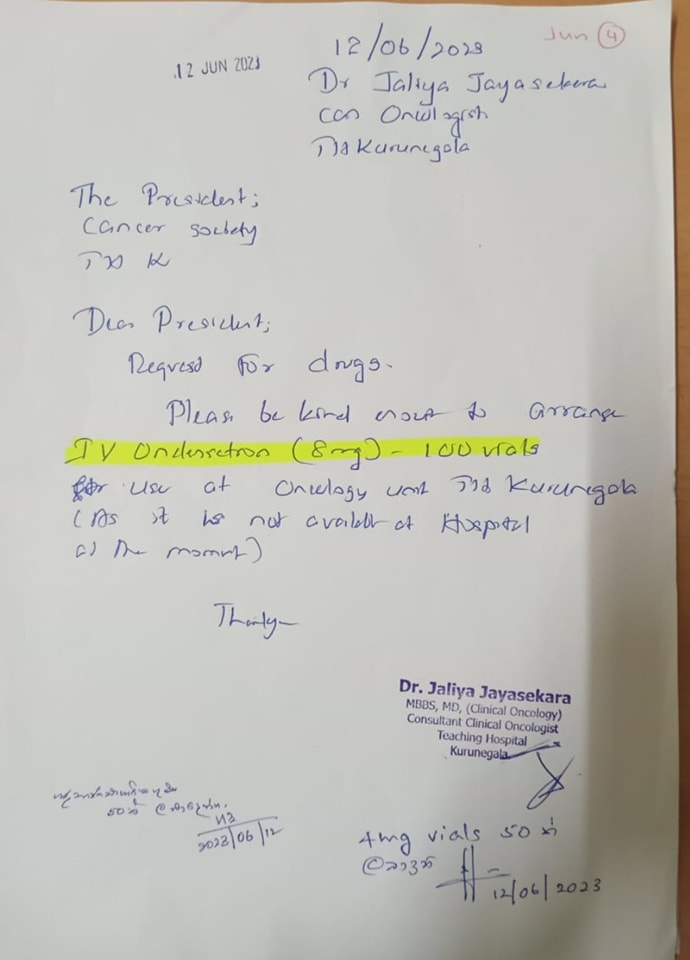 Jun 4
12/06/2023
12 JUN 2023
Dr Jaliya Jayasekera
Con Oncologist
TH Kurunegala
The President;
Cancer society
TH K
Dear President;
Request for drugs.
Please be kind enout to arrange
IV Ondensetron (8mg) - 100 vials
for use at Oncology unit TH Kurunegala
(As it is not availabl at Hospital
at the moment)
Thanks
Dr. Jaliya Jayasekara
MBBS, MD, (Clinical Oncology)
Consultant Clinical Oncologist
Teaching Hospital
Kurunegala
50 ක්
2023/06/12
4mg vials 50 ක්
12/06/2023